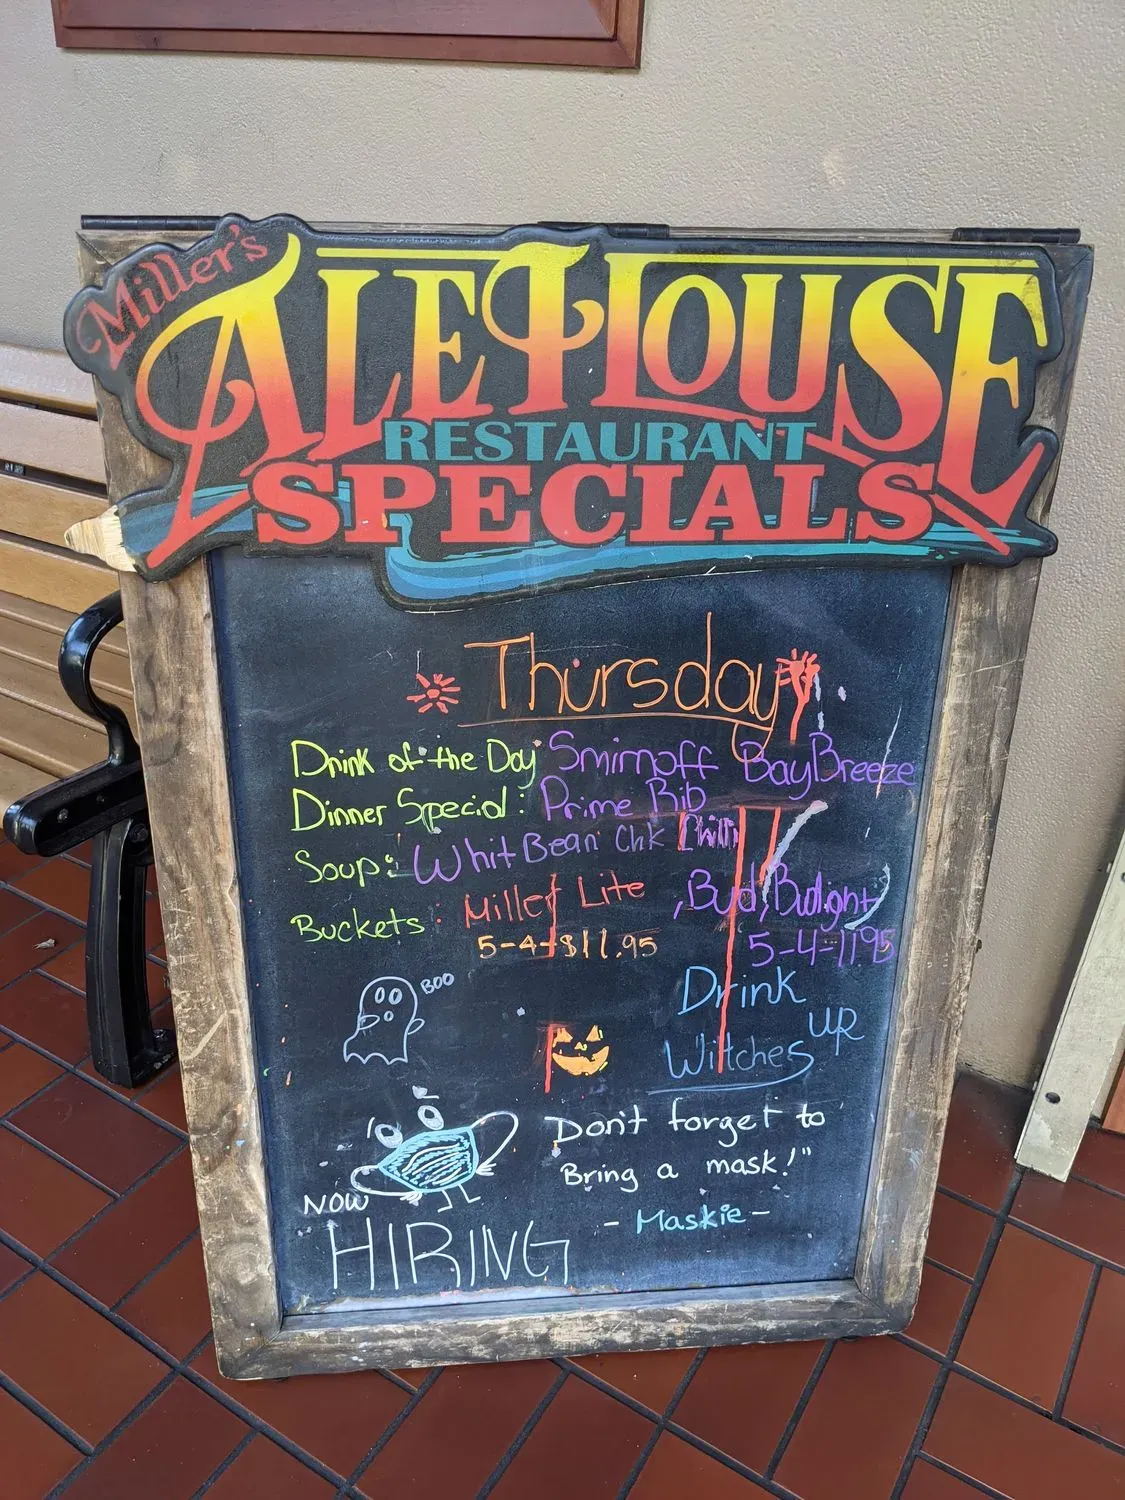 Miller's
ALEHOUSE
RESTAURANT
SPECIALS
Thursday
Drink of the Day Smirnoff BayBreeze
Dinner Special: Prime Rib
Soup: Whit Bean Chk Chilli
Buckets: Miller Lite , Bud, Budlight
5-4-$11.95 5-4-1195
BOO
Drink
up
Witches
Don't forget to
Bring a mask!"
- Maskie -
NOW
HIRING